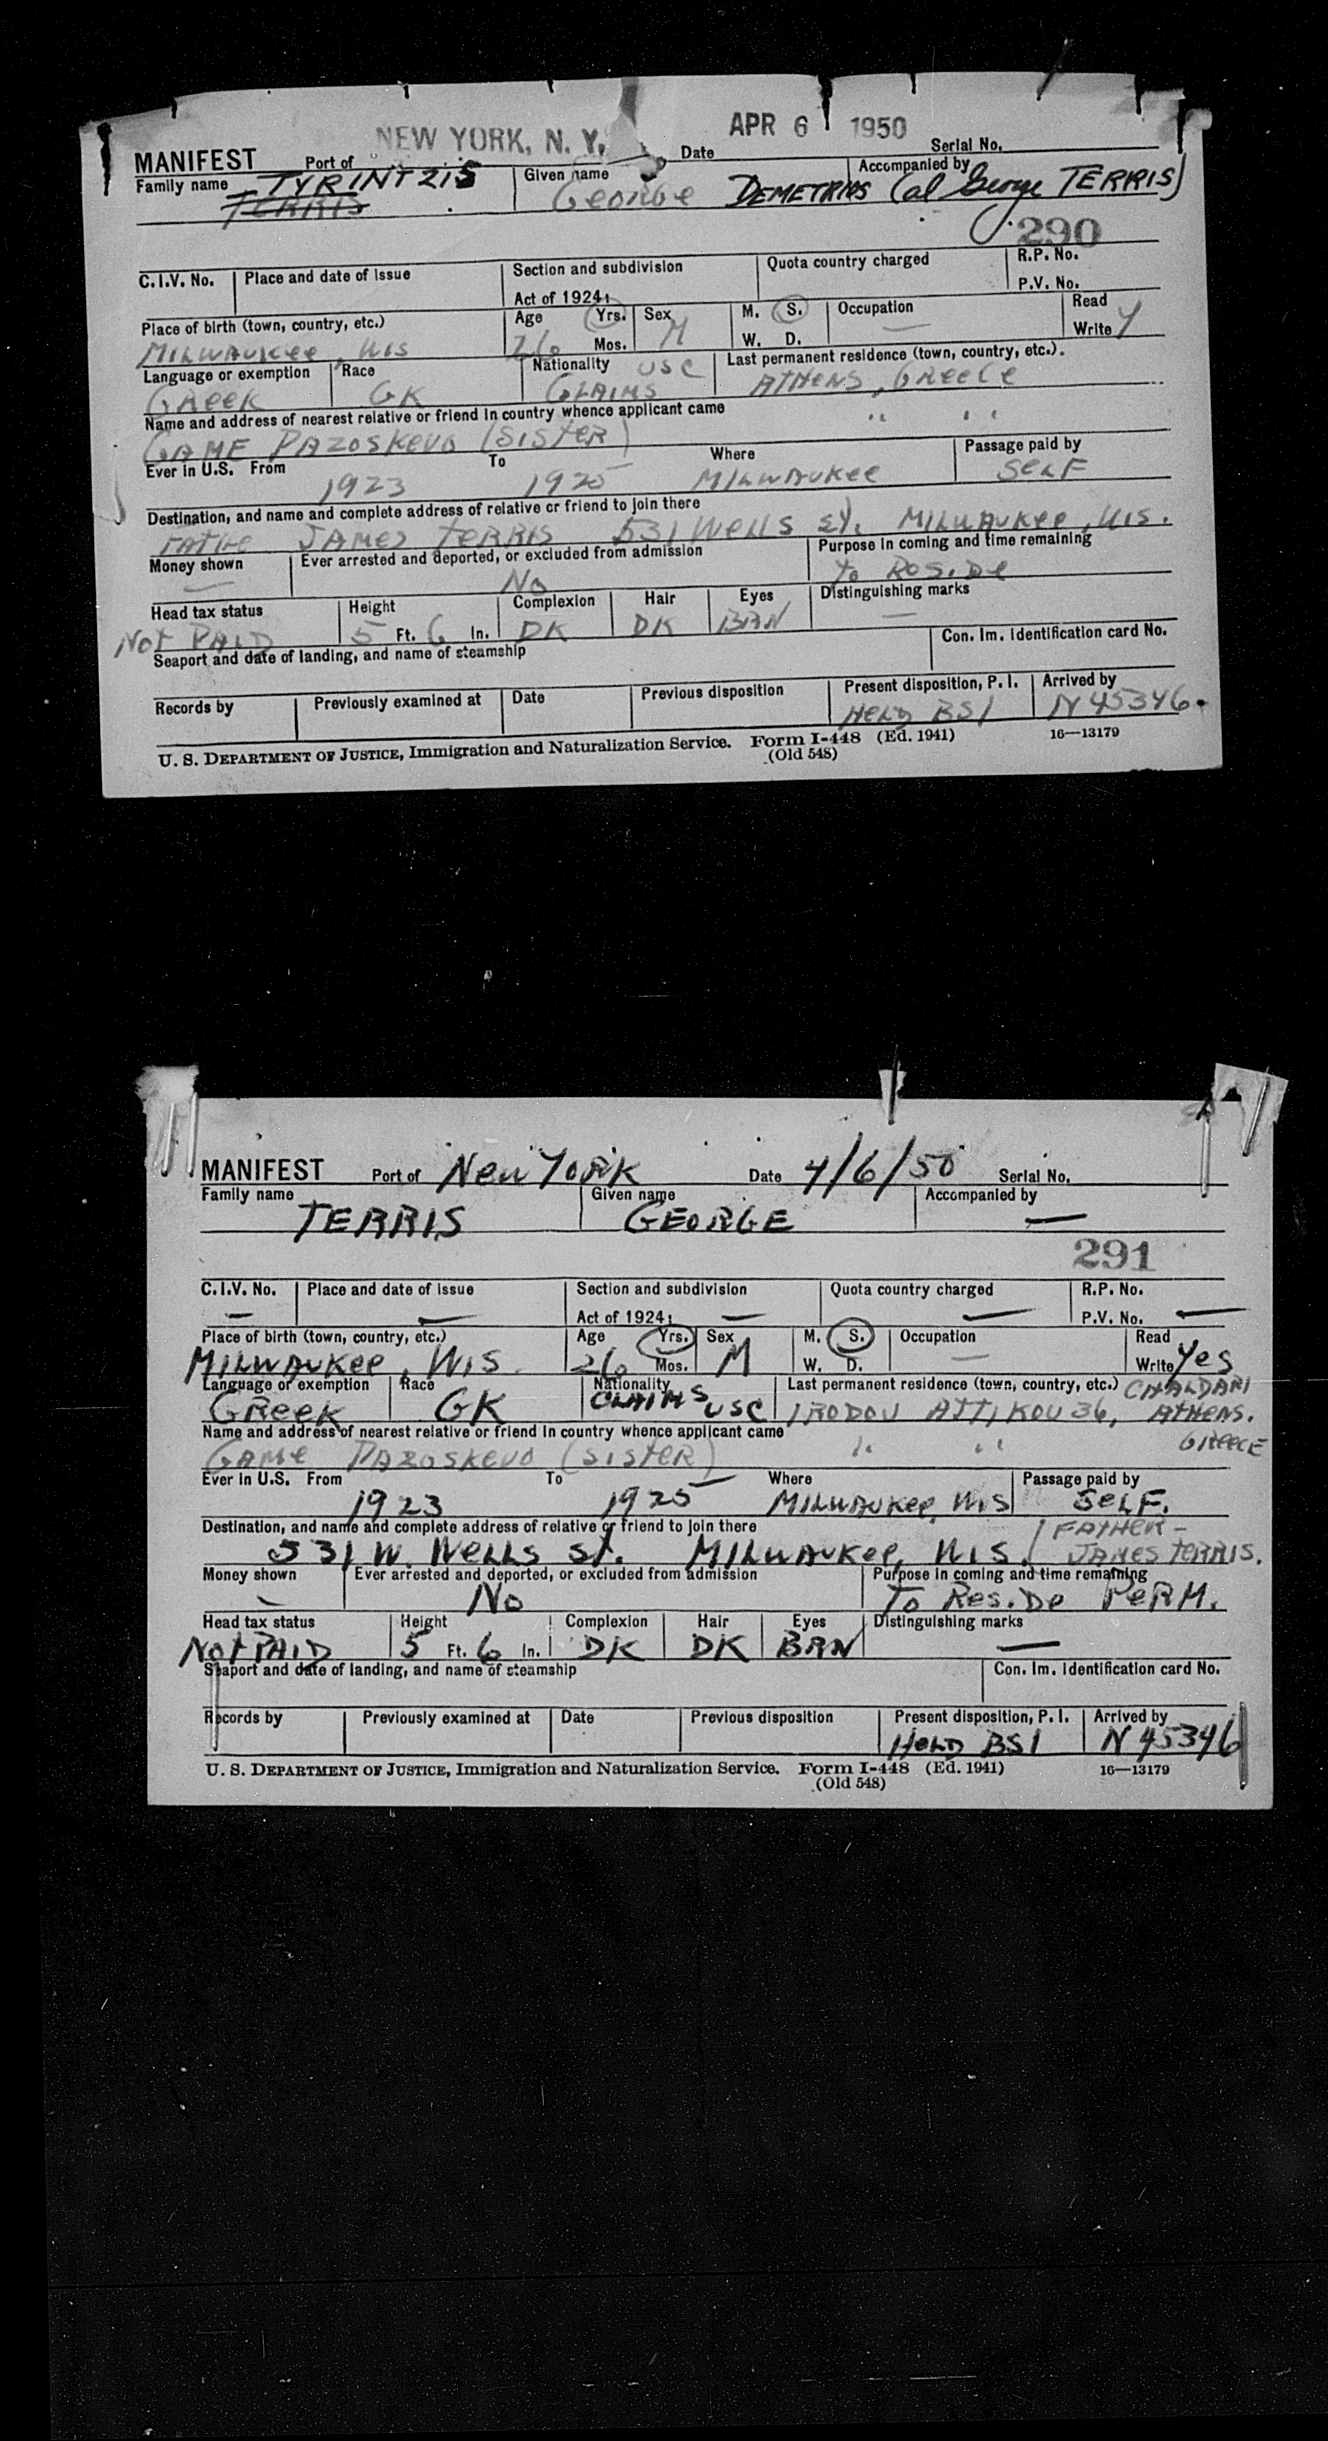 NEW YORK, N. Y. APR 6 1950
MANIFEST Port of Date Serial No.
Family name TYRINTZIS Given name George DEMETRIOS (al George TERRIS) Accompanied by
TERRIS
290
C.I.V. No. Place and date of issue Section and subdivision Quota country charged R.P. No.
Act of 1924: P.V. No.
Place of birth (town, country, etc.) Age Yrs. Sex M. S. Occupation Read
MILWAUKee, WIS 26 Mos. M W. D. Write Y
Language or exemption Race Nationality USC Last permanent residence (town, country, etc.).
GREEK GK CLAIMS ATHENS, GREECE
Name and address of nearest relative or friend in country whence applicant came
GAME PAZOSKEVO (SISTER) " " "
Ever in U.S. From To Where Passage paid by
1923 1925 MILWAUKEE SELF
Destination, and name and complete address of relative or friend to join there
JAMES TERRIS 531 WELLS ST. MILWAUKEE, WIS.
Money shown Ever arrested and deported, or excluded from admission Purpose in coming and time remaining
— No To ReSIDe
Head tax status Height Complexion Hair Eyes Distinguishing marks
NOT PAID 5 Ft. 6 In. DK DK BRN —
Seaport and date of landing, and name of steamship Con. Im. Identification card No.
Records by Previously examined at Date Previous disposition Present disposition, P. I. Arrived by
HELD BSI N 45346.
U. S. DEPARTMENT OF JUSTICE, Immigration and Naturalization Service. Form I-448 (Ed. 1941) 16—13179
(Old 548)
MANIFEST Port of New YORK Date 4/6/50 Serial No.
Family name Given name Accompanied by
TERRIS GEORGE —
291
C.I.V. No. Place and date of issue Section and subdivision Quota country charged R.P. No.
— — Act of 1924: — — P.V. No. —
Place of birth (town, country, etc.) Age Yrs. Sex M. S. Occupation Read
MILWAUKee, WIS. 26 Mos. M W. D. — Write Yes
Language or exemption Race Nationality Last permanent residence (town, country, etc.) CHALDARI
GREEK GK CLAIMS USC IRODOU ATTIKOU 36, ATHENS.
Name and address of nearest relative or friend in country whence applicant came GREECE
GAME PAZOSKEVO (SISTER) " " "
Ever in U.S. From To Where Passage paid by
1923 1925 MILWAUKee, WIS SELF.
Destination, and name and complete address of relative or friend to join there / FATHER -
531 W. WELLS ST. MILWAUKee, WIS. JAMES TERRIS.
Money shown Ever arrested and deported, or excluded from admission Purpose in coming and time remaining
— No To ReSIDe PeRM.
Head tax status Height Complexion Hair Eyes Distinguishing marks
NOT PAID 5 Ft. 6 In. DK DK BRN —
Seaport and date of landing, and name of steamship Con. Im. Identification card No.
Records by Previously examined at Date Previous disposition Present disposition, P. I. Arrived by
HELD BSI N 45346
U. S. DEPARTMENT OF JUSTICE, Immigration and Naturalization Service. Form I-448 (Ed. 1941) 16—13179
(Old 548)